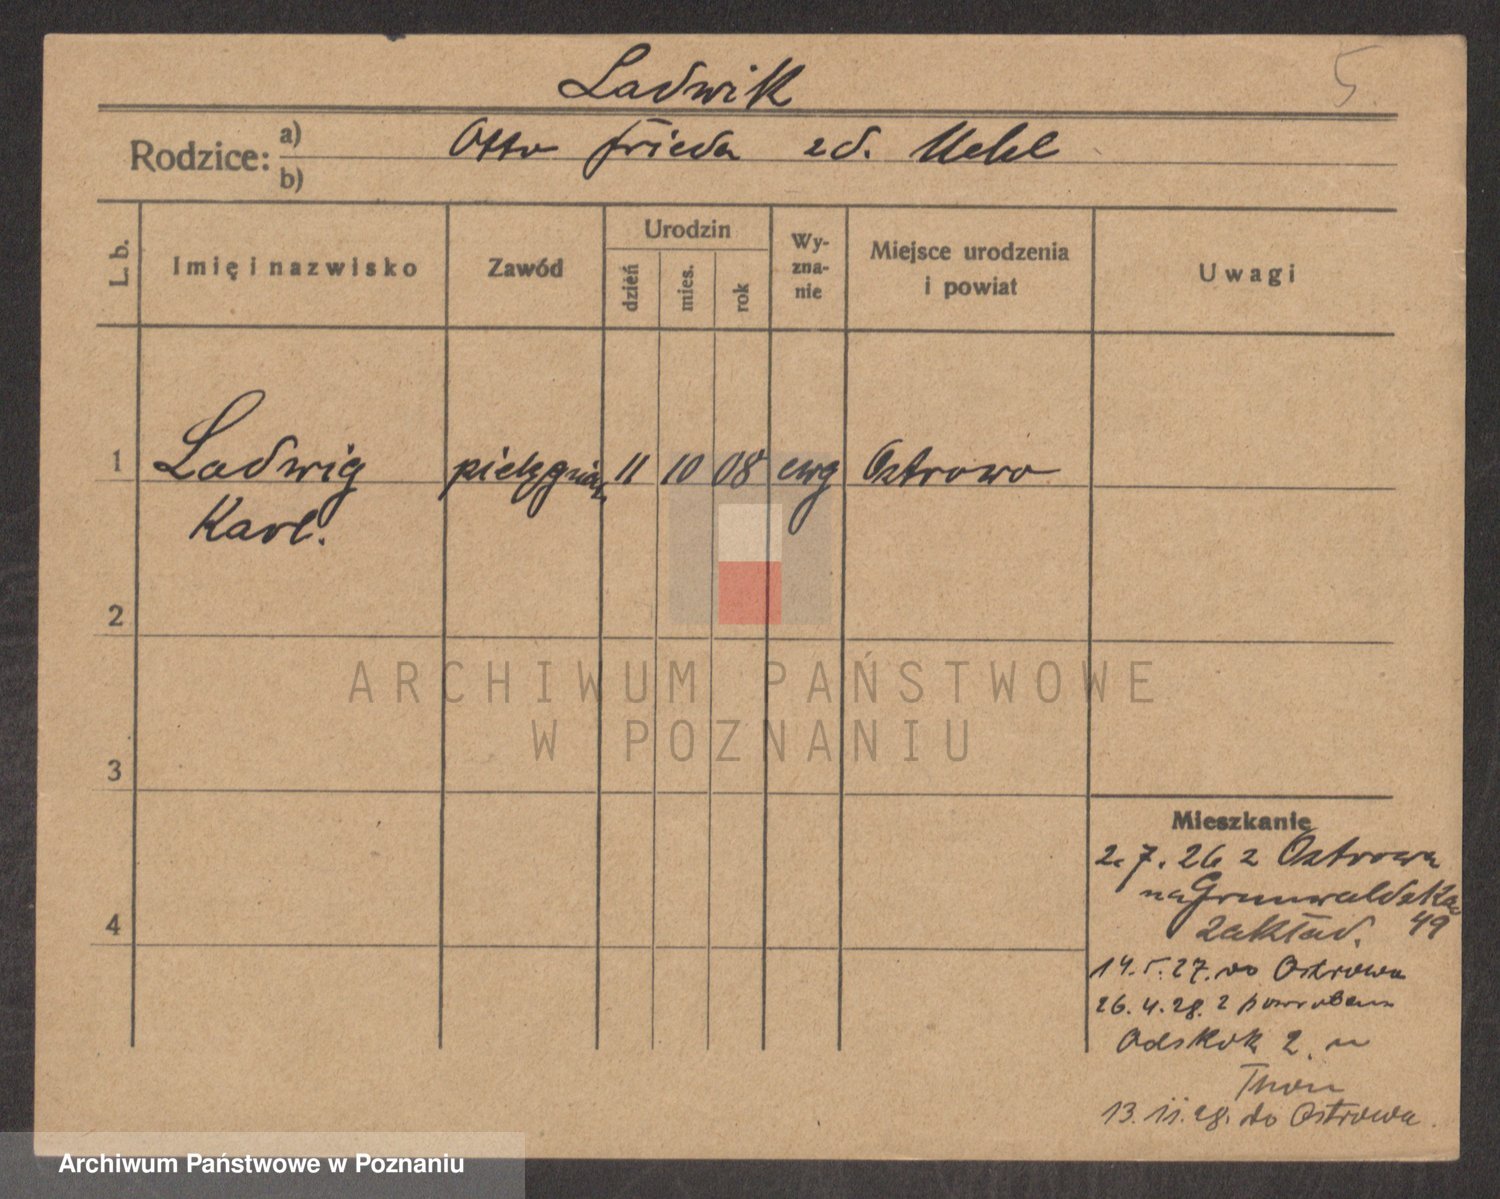 5
Ladwik
Rodzice: a) b)
Otto Frieda zd. Uehl
L. b.
Imię i nazwisko
Zawód
Urodzin
dzień
mies.
rok
Wy-
zna-
nie
Miejsce urodzenia
i powiat
Uwagi
1 Ladwig 11 10 08 ewg Ostrowo
Karl.
2
ARCHIWUM PAŃSTWOWE
W POZNANIU
3
Mieszkanie
2. 7. 26 z Ostrowa
na Grunwaldzka
zakład. 49
4
14. 5. 27. do Ostrowa
26. 4. 28. z powrotem
Odskok 2.
13. 11. 28. do Ostrowa.
Archiwum Państwowe w Poznaniu